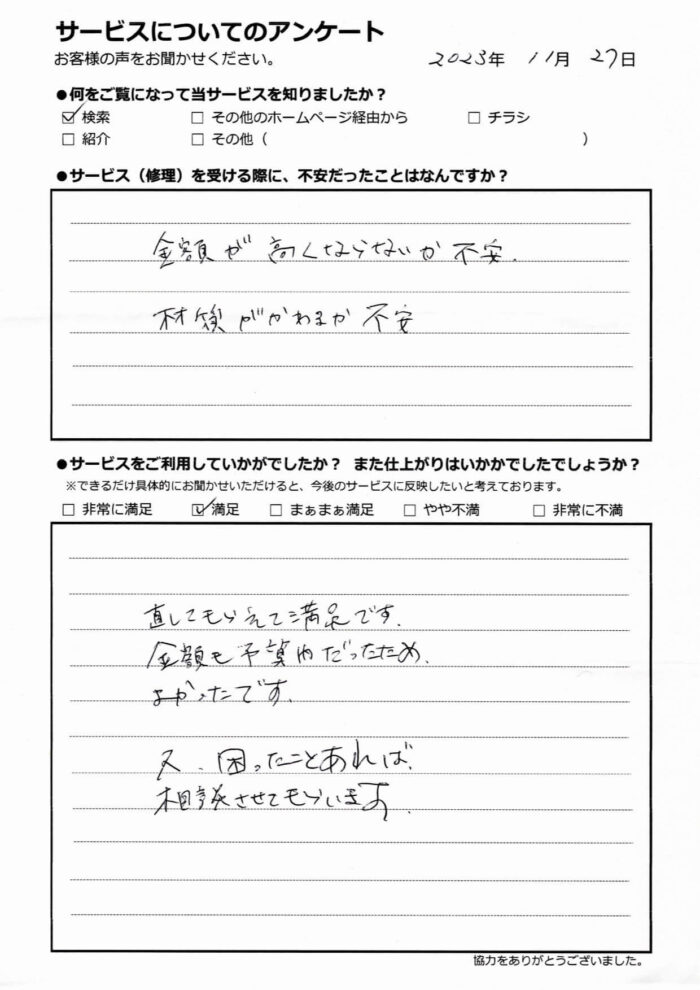 サービスについてのアンケート
お客様の声をお聞かせください。 2023年 11月 27日
●何をご覧になって当サービスを知りましたか？
☑ 検索 □ その他のホームページ経由から □ チラシ
□ 紹介 □ その他（ ）
●サービス（修理）を受ける際に、不安だったことはなんですか？
金額が高くならないか不安.
材質がかわるか不安
●サービスをご利用していかがでしたか？ また仕上がりはいかかでしたでしょうか？
※できるだけ具体的にお聞かせいただけると、今後のサービスに反映したいと考えております。
□ 非常に満足 ☑ 満足 □ まぁまぁ満足 □ やや不満 □ 非常に不満
直してもらえて満足です.
金額も予算内だったため.
よかったです.
又、困ったことあれば.
相談させてもらいます.
協力をありがとうございました。